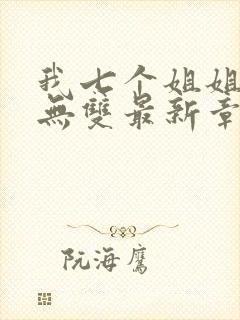 我七个姐姐
無雙最新章
阮海鷹